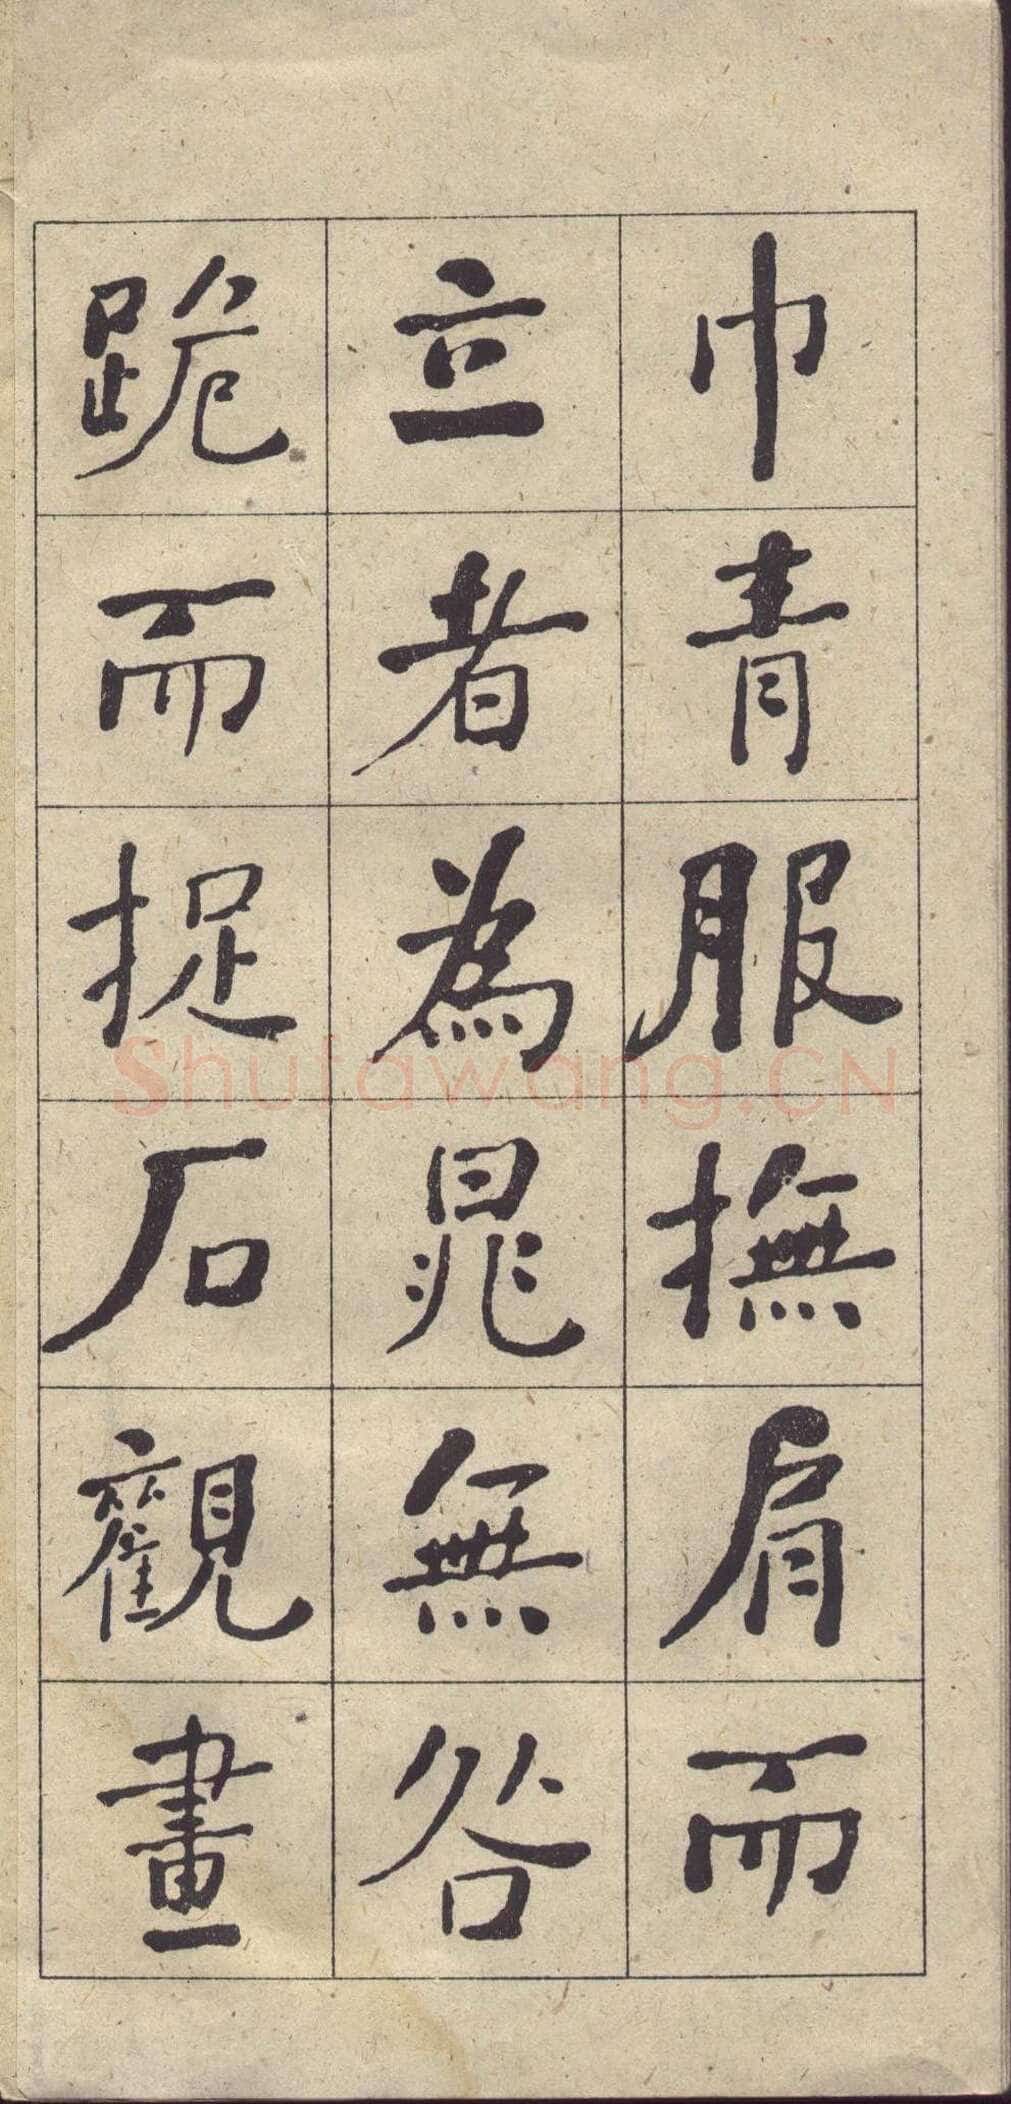 巾青服撫肩而
立者為晁無咎
跪而捉石觀畫
Shufawang.CN